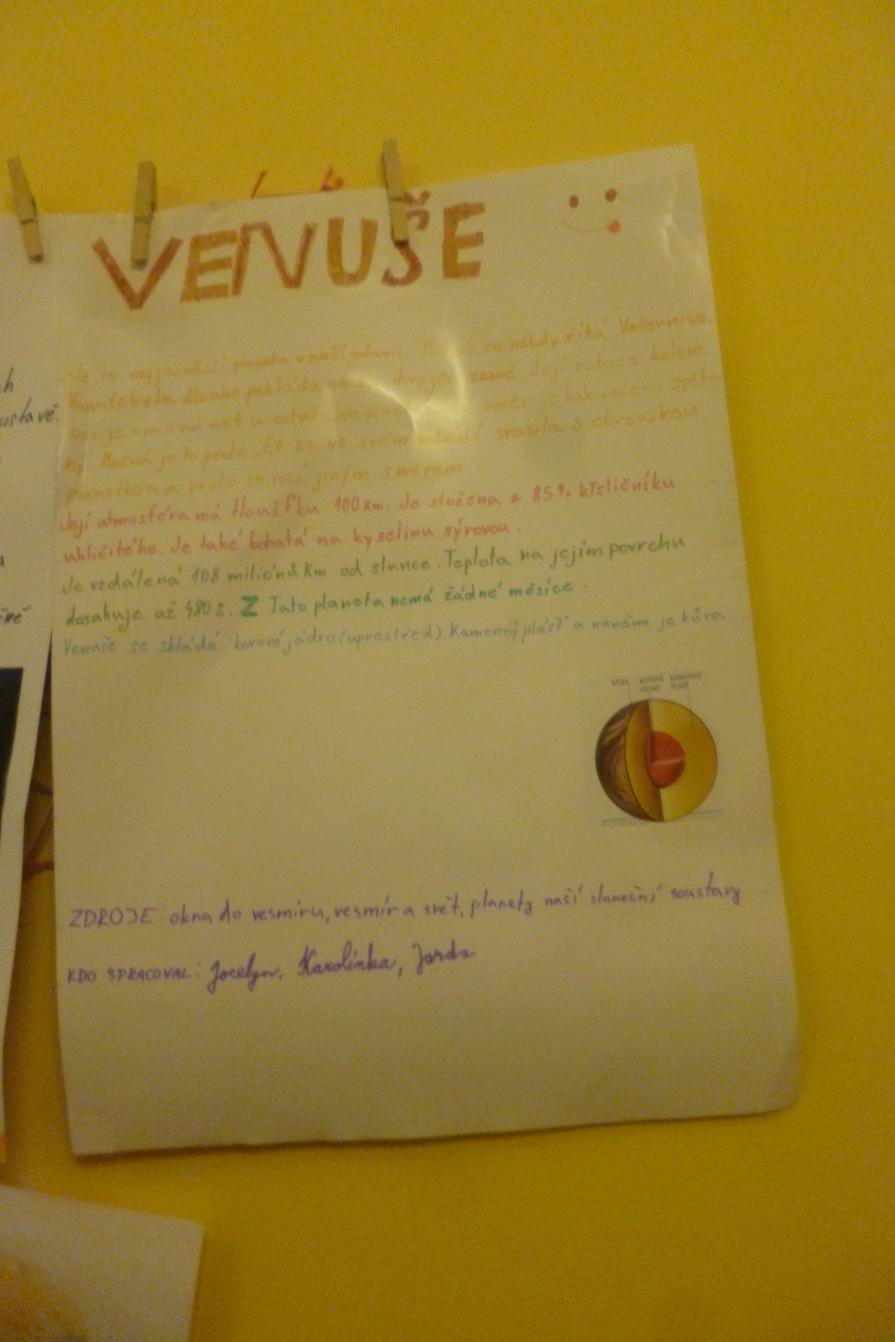 VENUŠE
Je to nejjasnější planeta v naší galaxii. se někdy říká Večernice.
Venuše byla dlouho pokládána za dvojče země Její rotace kolem
osi je opačná než u ostatních směr je tak ročena zpět-
ný. Možná je to proto, že se ve svém srazila s obrovskou
planetkou a proto se točí jiným směrem
Její atmosféra má tloušťku 100 km. Je složena z 85% kisličníku
uhličitého. Je také bohatá na kyselinu sýrovou.
Je vzdálená 108 miliónů km od slunce. Teplota na jejím povrchu
dosahuje až 480 Z Tato planeta nemá žádné měsíce.
Venuše se skládá kovové jádro (uprostřed) Kamenný plášť a naněm je kůra.
KŮRA KOVOVÉ KAMENNÝ
JÁDRO PLÁŠŤ
ZDROJE okna do vesmíru, vesmír a svět, planety naší sluneční soustavy
KDO SPRACOVAL: Jocelyn, Karolínka, Jarda
h
ustavě